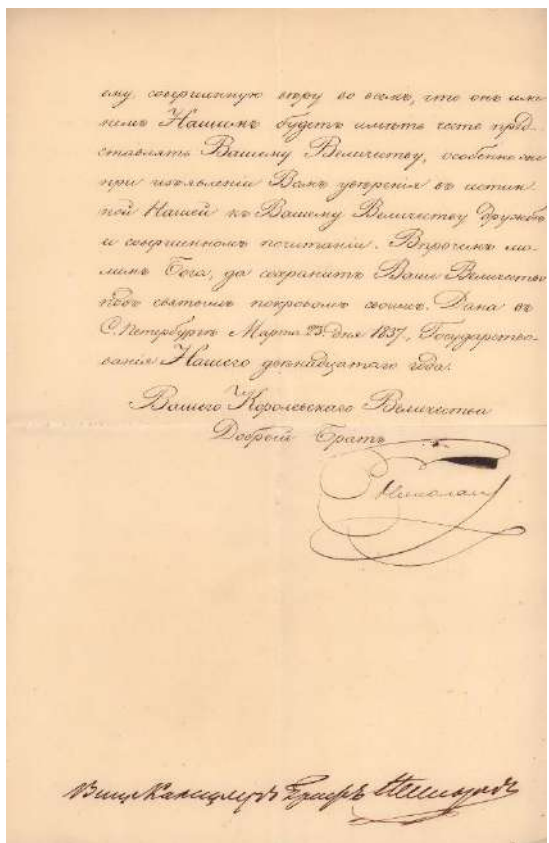 ему совершенную вѣру во всемъ, что онъ име-
немъ Нашимъ будетъ имѣть честь пред-
ставлять Вашему Величеству, особенно же
при изъявленіи Вамъ увѣренія въ истин-
ной Нашей къ Вашему Величеству дружбѣ
и совершенномъ почитаніи. Впрочемъ мо-
лимъ Бога, да сохранитъ Ваше Величество
подъ святымъ покровомъ своимъ. Дана въ
С. Петербургѣ Марта 23 дня 1837, Государство-
ванія Нашего двѣнадцатаго года.
Вашего Королевскаго Величества
Добрый Братъ
Николай
Вице Канцлеръ Графъ Нессельродъ